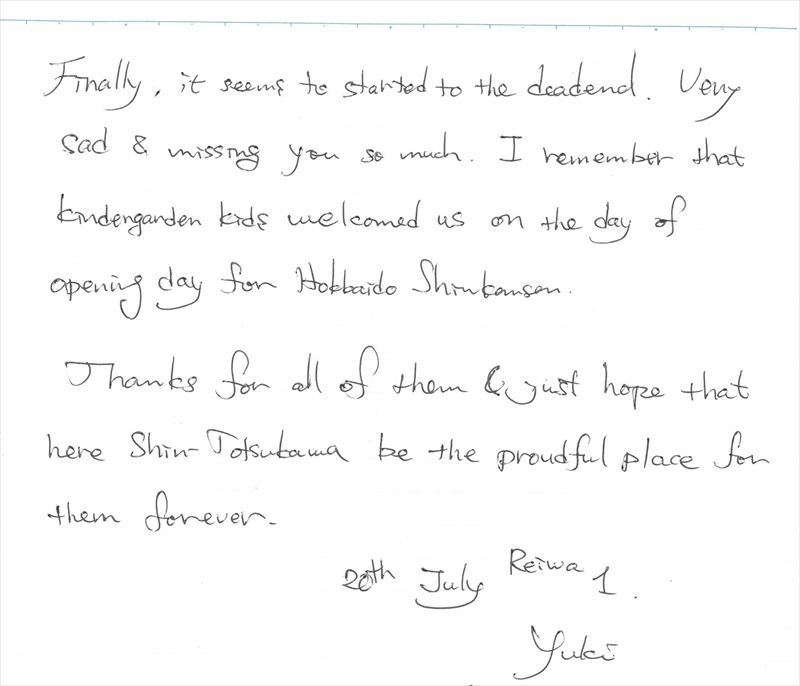 Finally, it seems to started to the deadend. Very
sad & missing you so much. I remember that
kindenganden kids welcomed us on the day of
opening day for Hokkaido Shinkansen.
Thanks for all of them & just hope that
here Shin-Totsukawa be the proudful place for
them forever.
20th July Reiwa 1.
Yuki